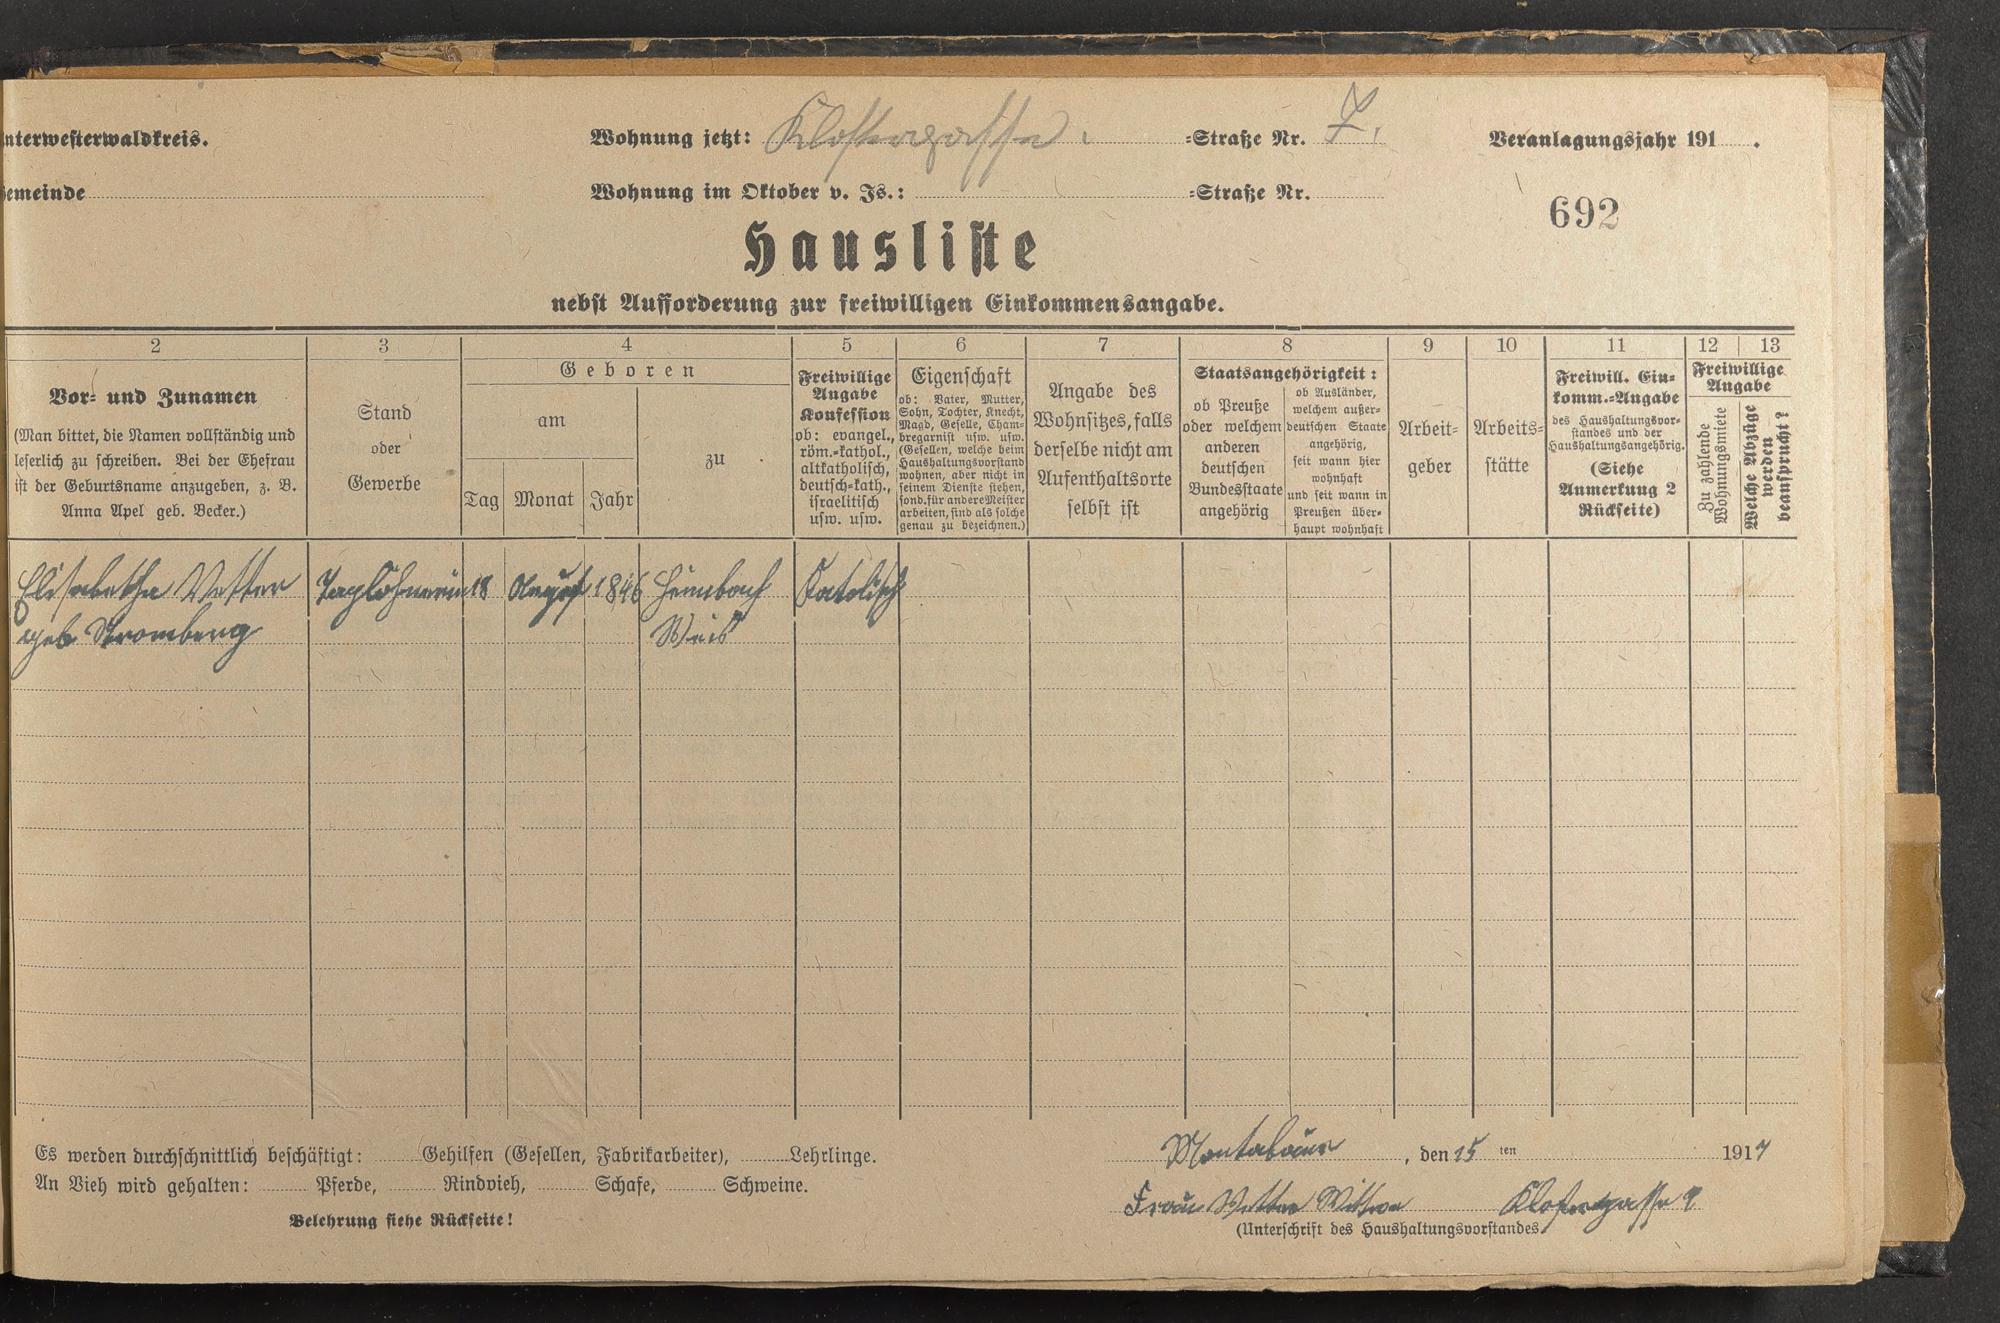 nterwesterwaldkreis.
Wohnung jetzt: Klostergasse. =Straße Nr. 7.
Veranlagungsjahr 191 .
emeinde
Wohnung im Oktober v. Js.: =Straße Nr.
692
Hausliste
nebst Aufforderung zur freiwilligen Einkommensangabe.
2 3 4 5 6 7 8 9 10 11 12 13
Vor- und Zunamen
(Man bittet, die Namen vollständig und
leserlich zu schreiben. Bei der Ehefrau
ist der Geburtsname anzugeben, z. B.
Anna Apel geb. Becker.)
Stand
oder
Gewerbe
Geboren
am
Tag Monat Jahr
zu
Freiwillige
Angabe
Konfession
ob: evangel.,
röm.=kathol.,
altkatholisch,
deutsch=kath.,
israelitisch
usw. usw.
Eigenschaft
ob: Vater, Mutter,
Sohn, Tochter, Knecht,
Magd, Geselle, Cham-
bregarnist usw. usw.
(Gesellen, welche beim
Haushaltungsvorstand
wohnen, aber nicht in
seinem Dienste stehen,
sond. für andere Meister
arbeiten, sind als solche
genau zu bezeichnen.)
Angabe des
Wohnsitzes, falls
derselbe nicht am
Aufenthaltsorte
selbst ist
Staatsangehörigkeit:
ob Preuße
oder welchem
anderen
deutschen
Bundesstaate
angehörig
ob Ausländer,
welchem außer-
deutschen Staate
angehörig,
seit wann hier
wohnhaft
und seit wann in
Preußen über-
haupt wohnhaft
Arbeit-
geber
Arbeits-
stätte
Freiwill. Ein-
komm.=Angabe
des Haushaltungsvor-
standes und der
Haushaltungsangehörig.
(Siehe
Anmerkung 2
Rückseite)
Freiwillige
Angabe
Zu zahlende
Wohnungsmiete
Welche Abzüge
werden
beansprucht?
Elisabetha Vetter Taglöhnerin 18 August 1846 Heimbach Katolisch
geb Stromberg Weis
Es werden durchschnittlich beschäftigt: Gehilfen (Gesellen, Fabrikarbeiter), Lehrlinge.
An Vieh wird gehalten: Pferde, Rindvieh, Schafe, Schweine.
Belehrung siehe Rückseite!
Montabaur, den 15 ten 1917
Frau Vetter Wittwe Klostergasse 9
(Unterschrift des Haushaltungsvorstandes